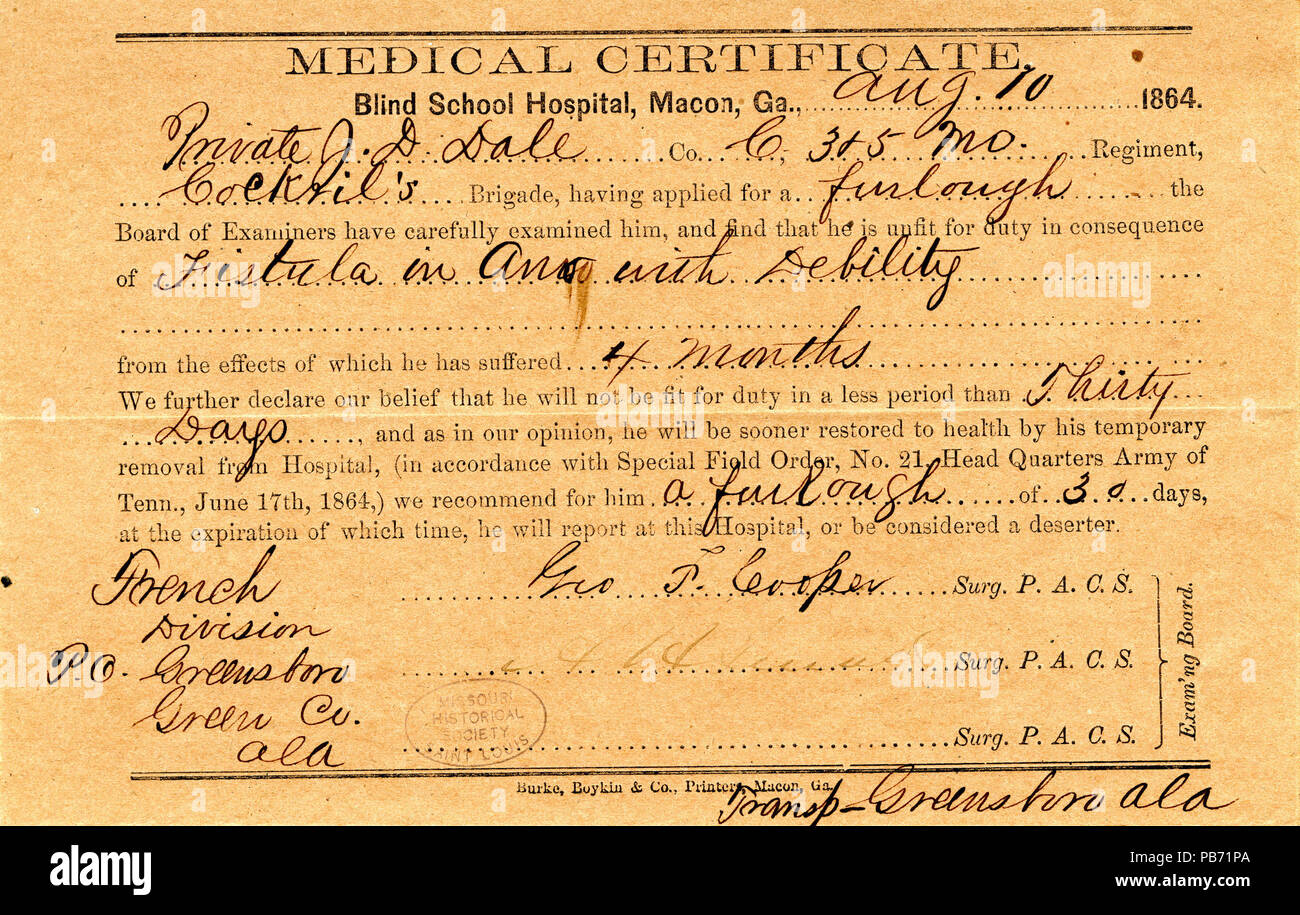 MEDICAL CERTIFICATE.
Blind School Hospital, Macon, Ga., Aug. 10 1864.
Private J. D. Dale Co. C, 3 & 5 Mo. Regiment,
Cockril's Brigade, having applied for a furlough the
Board of Examiners have carefully examined him, and find that he is unfit for duty in consequence
of Fistula in Ano with Debility
from the effects of which he has suffered 4 months
We further declare our belief that he will not be fit for duty in a less period than Thirty
Days, and as in our opinion, he will be sooner restored to health by his temporary
removal from Hospital, (in accordance with Special Field Order, No. 21, Head Quarters Army of
Tenn., June 17th, 1864,) we recommend for him a furlough of 30 days,
at the expiration of which time, he will report at this Hospital, or be considered a deserter.
French
Division
P.O. Greensboro
Green Co.
Ala
Geo F. Cooper Surg. P. A. C. S.
Surg. P. A. C. S.
Surg. P. A. C. S.
Exam'ng Board.
MISSOURI
HISTORICAL
SOCIETY
SAINT LOUIS
Burke, Boykin & Co., Printers, Macon, Ga.
Transp - Greensboro Ala
alamy
alamy
Image ID: PB71PA
www.alamy.com